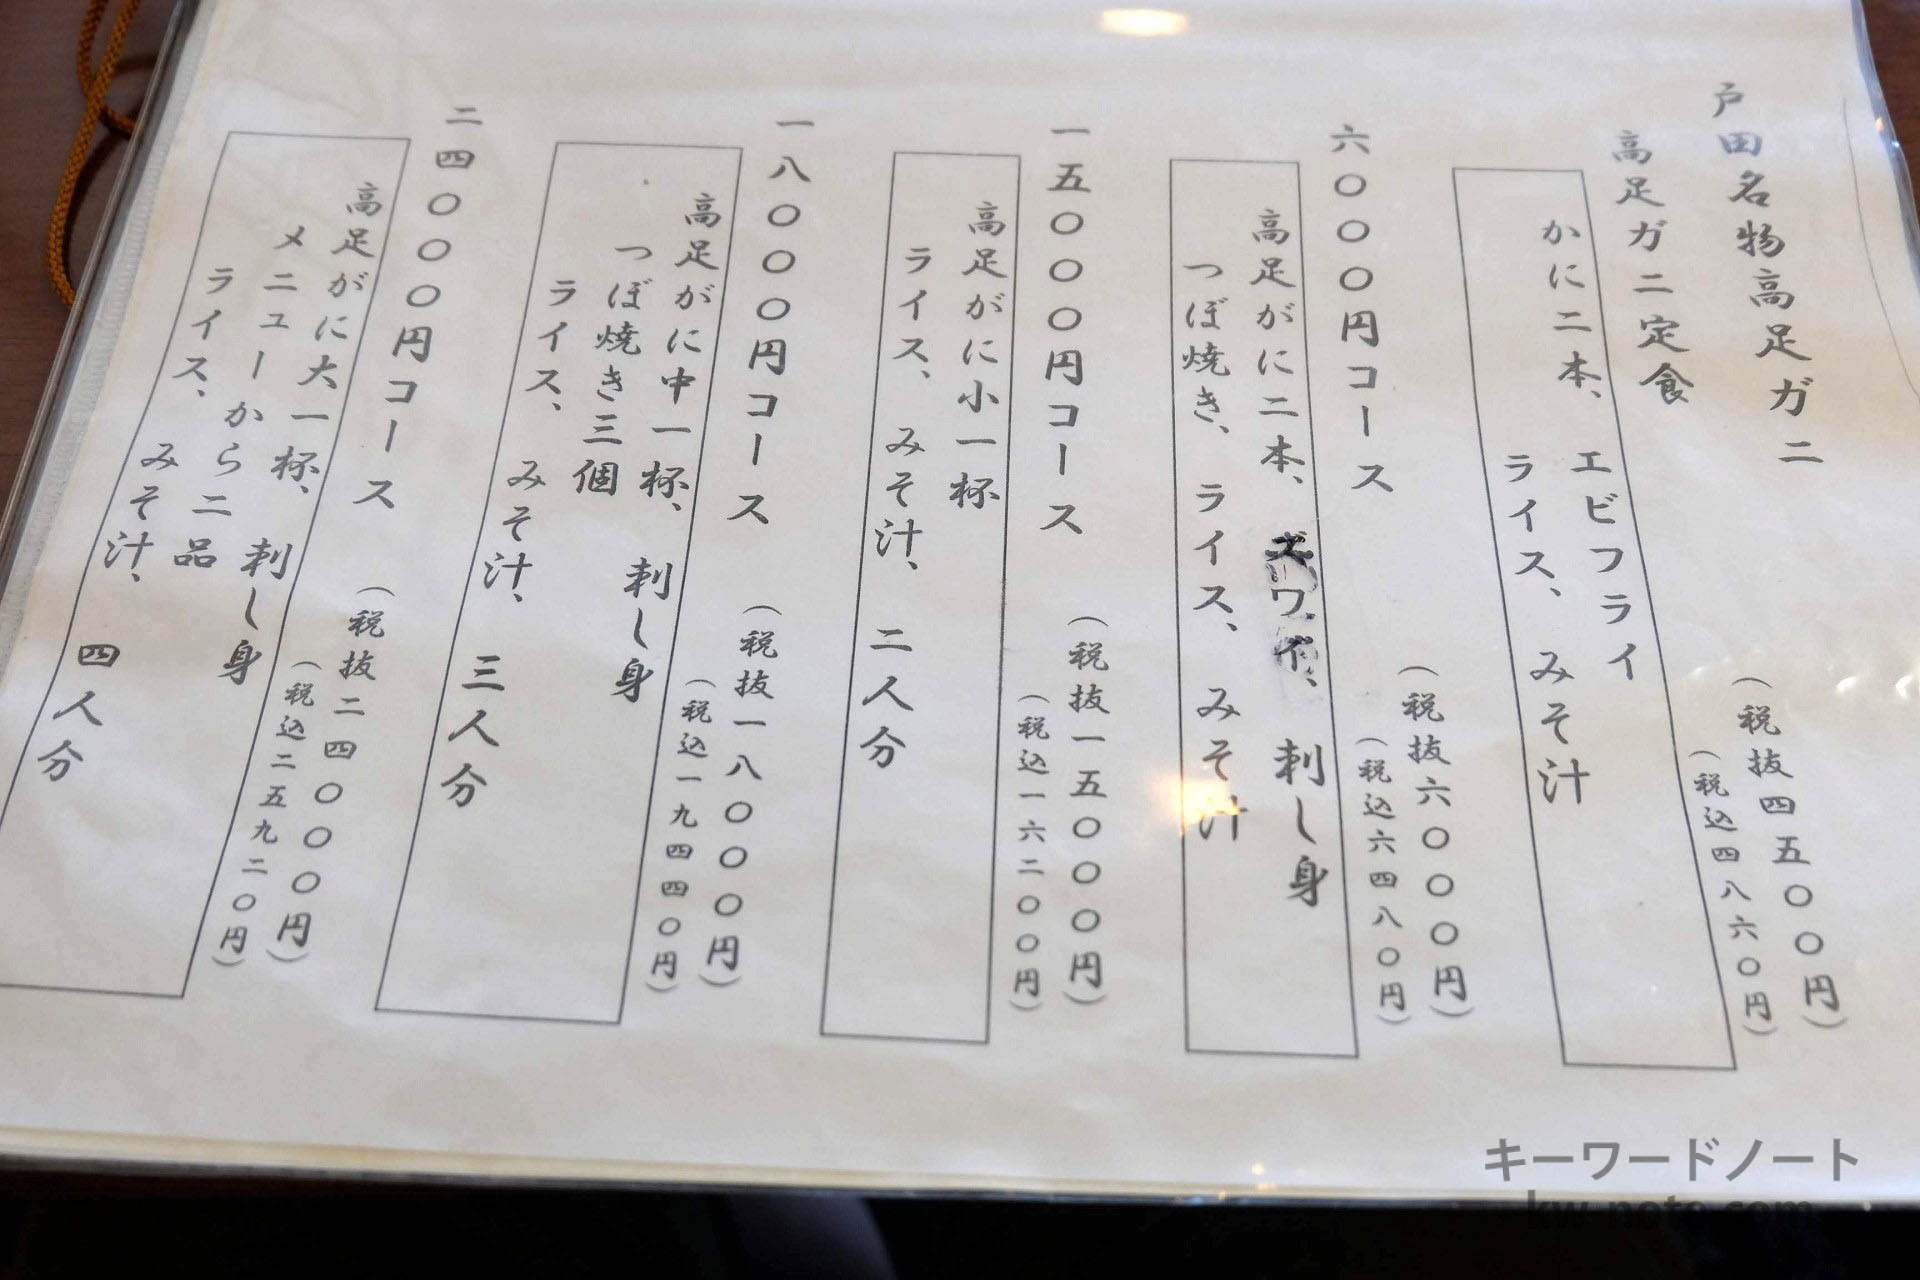 戸田名物高足ガニ
高足ガニ定食
(税抜四五〇〇円)
(税込四八六〇円)
かに二本、エビフライ
ライス、みそ汁
六〇〇〇円コース
(税抜六〇〇〇円)
(税込六四八〇円)
高足がに二本、ズワイ、刺し身
つぼ焼き、ライス、みそ汁
一五〇〇〇円コース
(税抜一五〇〇〇円)
(税込一六二〇〇円)
高足がに小一杯
ライス、みそ汁、二人分
一八〇〇〇円コース
(税抜一八〇〇〇円)
(税込一九四四〇円)
高足がに中一杯、刺し身
つぼ焼き三個
ライス、みそ汁、三人分
二四〇〇〇円コース
(税抜二四〇〇〇円)
(税込二五九二〇円)
高足がに大一杯、刺し身
メニューから二品
ライス、みそ汁、四人分
キーワードノート
kw-note.com